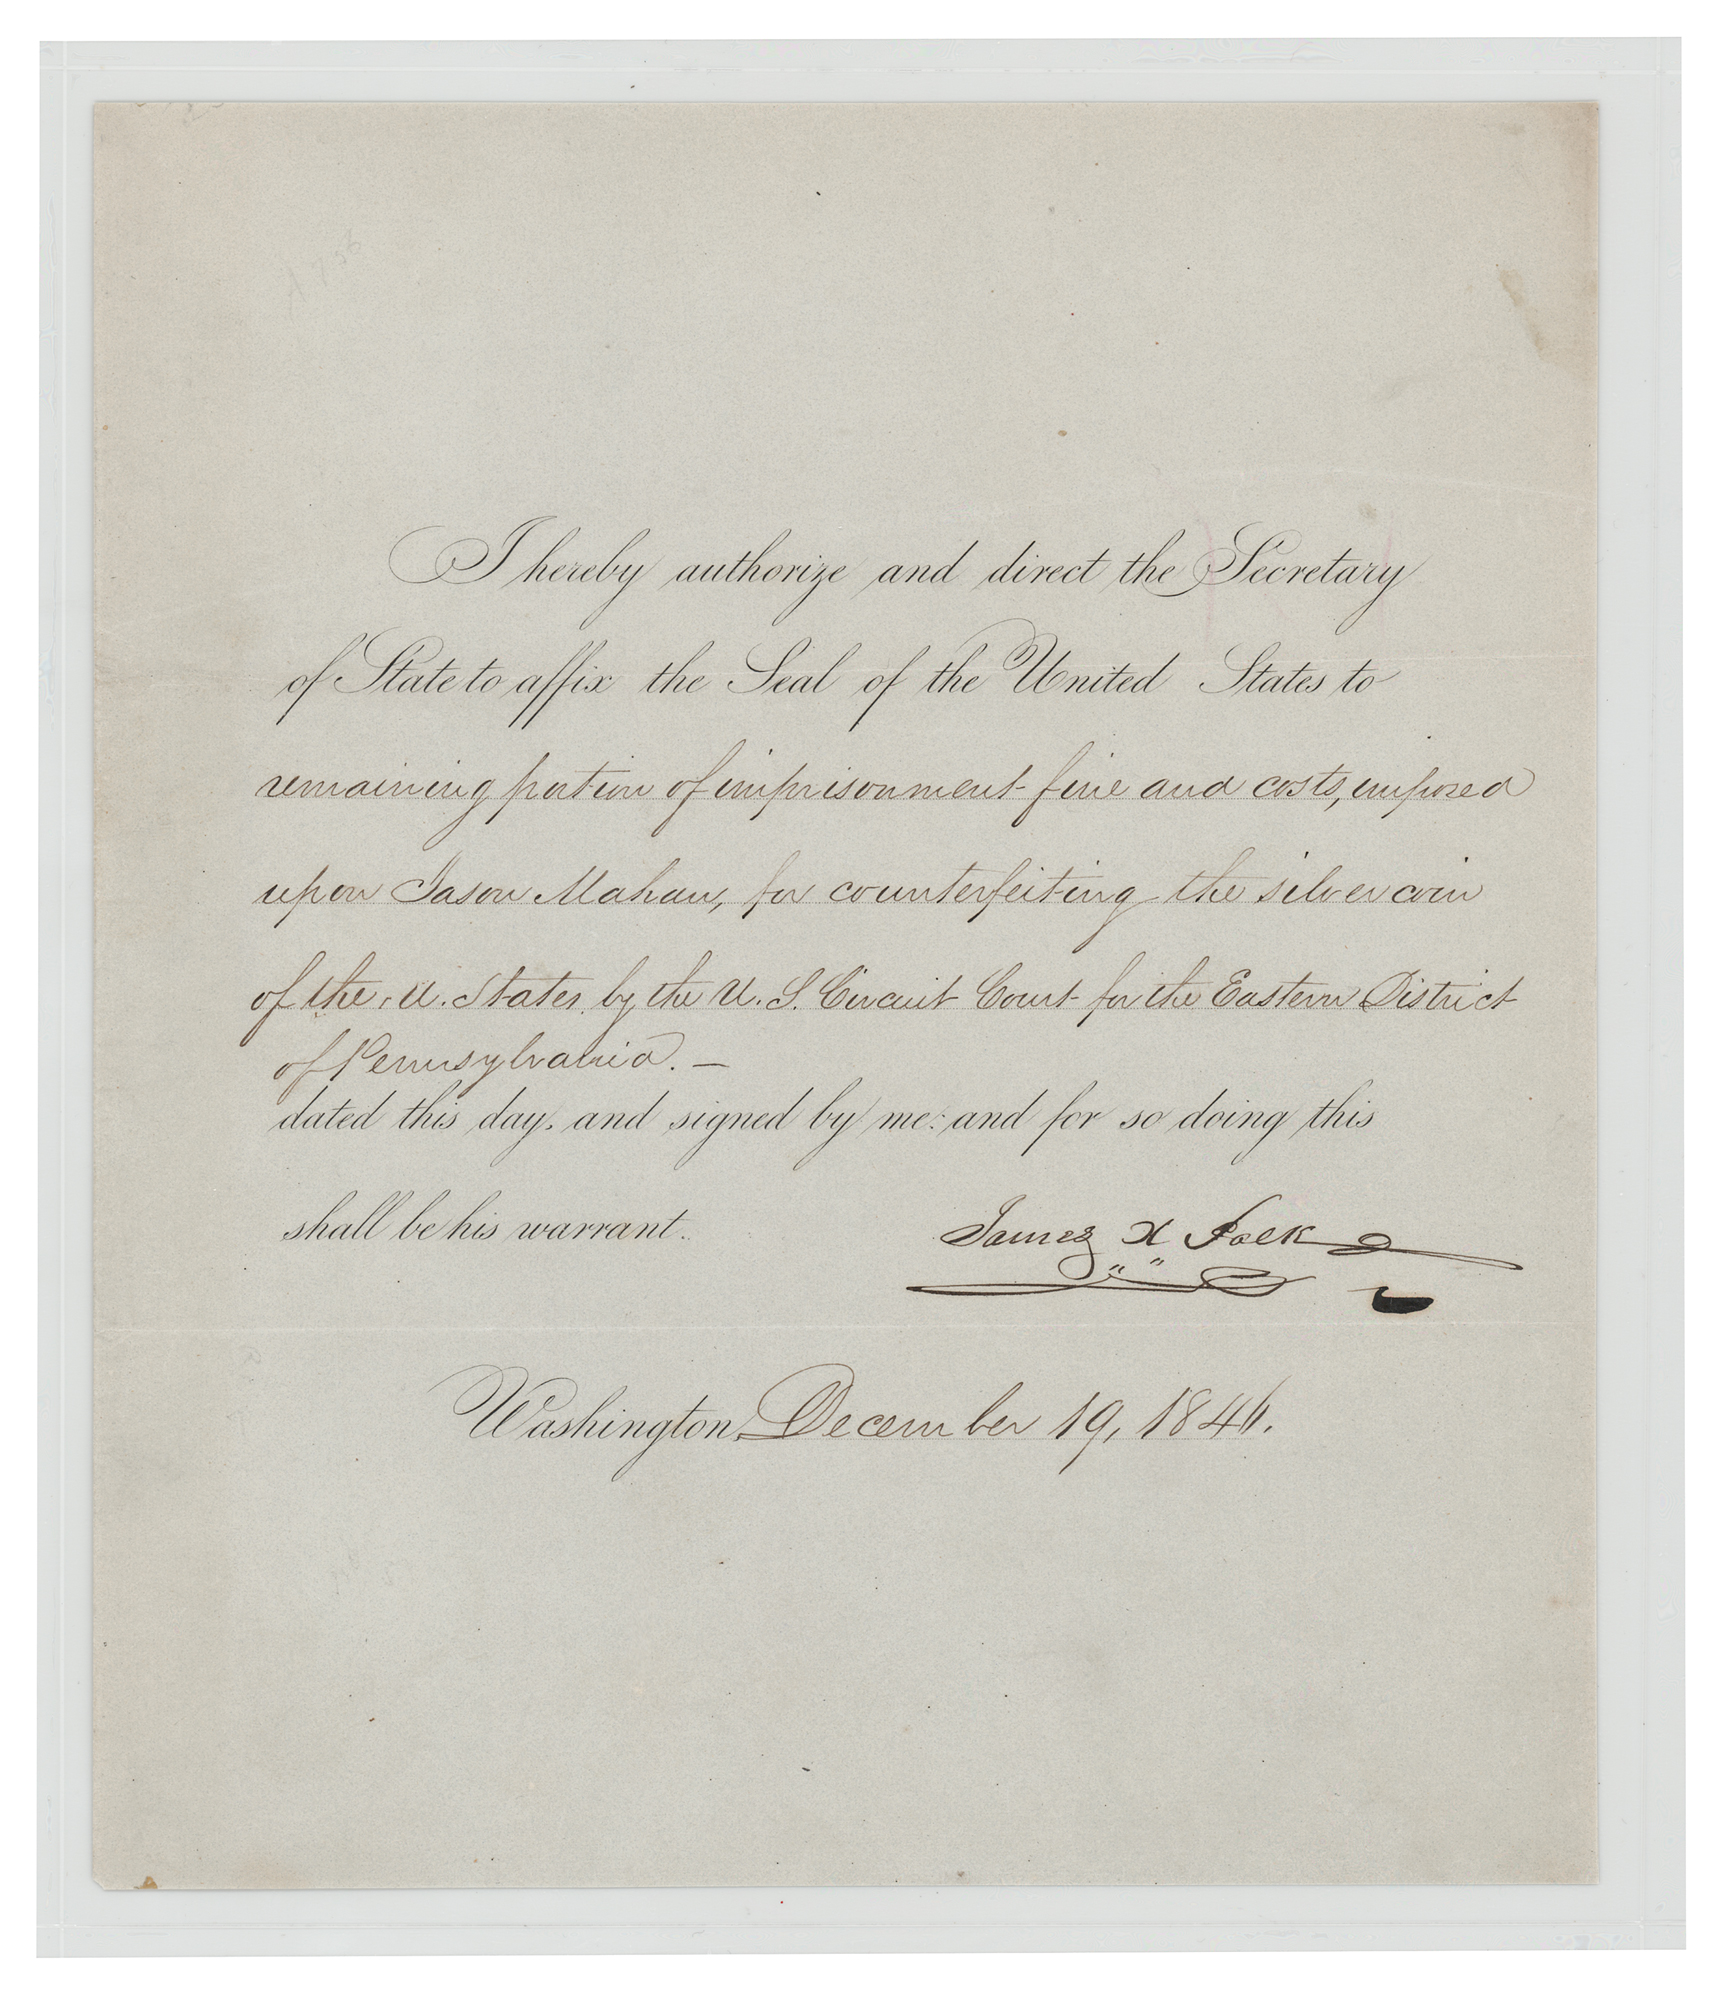 I hereby authorize and direct the Secretary
of State to affix the Seal of the United States to
remaining portion of imprisonment fine and costs, imposed
upon Jason Mahan, for counterfeiting the silver coin
of the U. States, by the U. S. Circuit Court for the Eastern District
of Pennsylvania. —
dated this day, and signed by me: and for so doing this
shall be his warrant.
James K Polk
Washington, December 19, 1846.